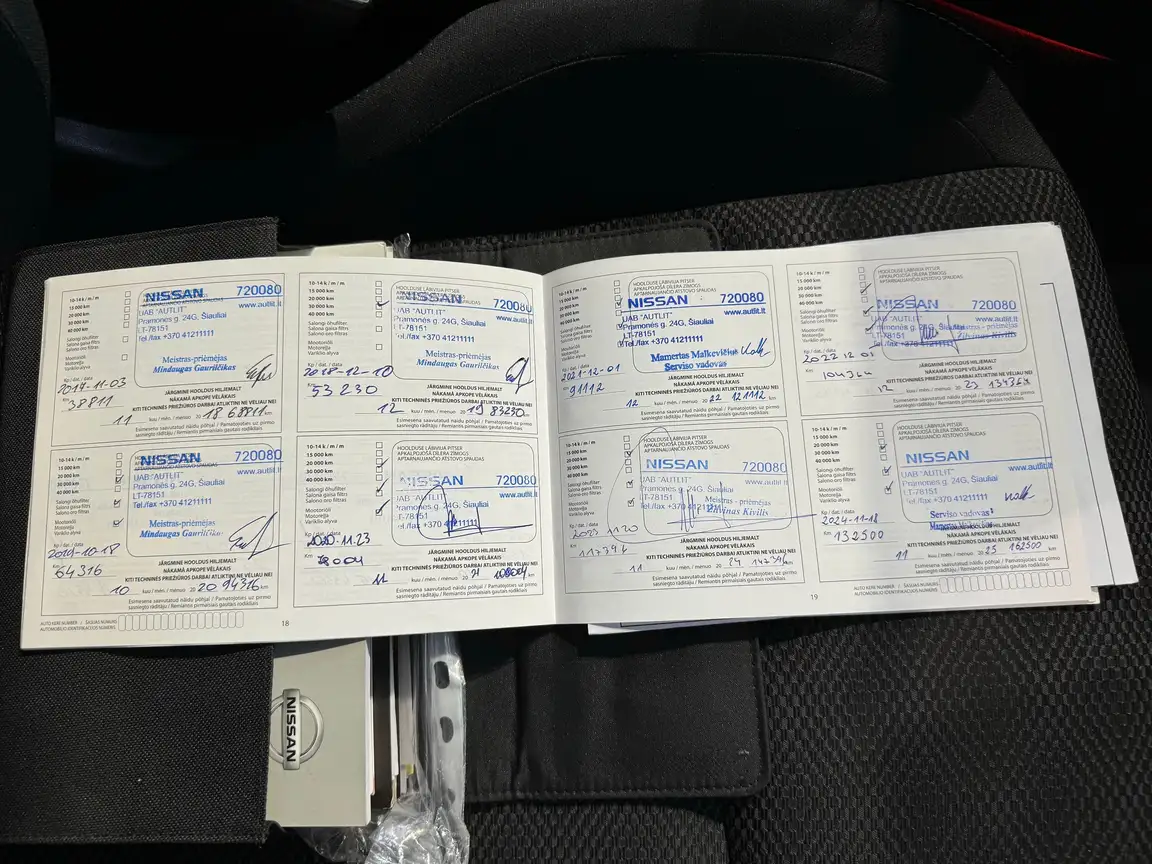 10-14 k / m / m
15 000 km
20 000 km
30 000 km
40 000 km
Salongi õhufilter
Salona gaisa filtrs
Salono oro filtras
Mootoriõli
Motoreļļa
Variklio alyva
NISSAN 720080
www.autlit.lt
UAB "AUTLIT"
Pramonės g. 24G, Šiauliai
LT-78151
Tel./fax +370 41211111
Meistras-priėmėjas
Mindaugas Gauričikas
Kp / dat. / data
2017-11-03
38811
JÄRGMINE HOOLDUS HILJEMALT
NĀKAMĀ APKOPE VĒLĀKAIS
KITI TECHNINĖS PRIEŽIŪROS DARBAI ATLIKTINI NE VĖLIAU NEI
11 kuu / mēn. / mėnuo 20 18 68811 km
Esimesena saavutatud näidu põhjal / Pamatojoties uz pirmo
sasniegto rādītāju / Remiantis pirmaisiais gautais rodikliais
10-14 k / m / m
15 000 km
20 000 km
30 000 km
40 000 km
Salongi õhufilter
Salona gaisa filtrs
Salono oro filtras
Mootoriõli
Motoreļļa
Variklio alyva
HOOLDUSE LÄBIVIIJA PITSER
APKALPOJOŠĀ DĪLERA ZĪMOGS
APTARNAUJANČIO ATSTOVO SPAUDAS
NISSAN 720080
www.autlit.lt
UAB "AUTLIT"
Pramonės g. 24G, Šiauliai
LT-78151
Tel./fax +370 41211111
Meistras-priėmėjas
Mindaugas Gauričikas
Kp / dat. / data
2018-12-10
Km 53230
JÄRGMINE HOOLDUS HILJEMALT
NĀKAMĀ APKOPE VĒLĀKAIS
KITI TECHNINĖS PRIEŽIŪROS DARBAI ATLIKTINI NE VĖLIAU NEI
12 kuu / mēn. / mėnuo 20 19 83230 km
Esimesena saavutatud näidu põhjal / Pamatojoties uz pirmo
sasniegto rādītāju / Remiantis pirmaisiais gautais rodikliais
10-14 k / m / m
15 000 km
20 000 km
30 000 km
40 000 km
Salongi õhufilter
Salona gaisa filtrs
Salono oro filtras
Mootoriõli
Motoreļļa
Variklio alyva
NISSAN 720080
www.autlit.lt
UAB "AUTLIT"
Pramonės g. 24G, Šiauliai
LT-78151
Tel./fax +370 41211111
Meistras-priėmėjas
Mindaugas Gauričikas
Kp / dat. / data
2019-10-18
Km 64316
JÄRGMINE HOOLDUS HILJEMALT
NĀKAMĀ APKOPE VĒLĀKAIS
KITI TECHNINĖS PRIEŽIŪROS DARBAI ATLIKTINI NE VĖLIAU NEI
10 kuu / mēn. / mėnuo 20 20 94316 km
Esimesena saavutatud näidu põhjal / Pamatojoties uz pirmo
sasniegto rādītāju / Remiantis pirmaisiais gautais rodikliais
10-14 k / m / m
15 000 km
20 000 km
30 000 km
40 000 km
Salongi õhufilter
Salona gaisa filtrs
Salono oro filtras
Mootoriõli
Motoreļļa
Variklio alyva
HOOLDUSE LÄBIVIIJA PITSER
APKALPOJOŠĀ DĪLERA ZĪMOGS
APTARNAUJANČIO ATSTOVO SPAUDAS
NISSAN 720080
www.autlit.lt
UAB "AUTLIT"
Pramonės g. 24G, Šiauliai
LT-78151
Tel./fax +370 41211111
Kp / dat. / data
2020-11.23
Km
JÄRGMINE HOOLDUS HILJEMALT
NĀKAMĀ APKOPE VĒLĀKAIS
KITI TECHNINĖS PRIEŽIŪROS DARBAI ATLIKTINI NE VĖLIAU NEI
11 kuu / mēn. / mėnuo 20 21 km
Esimesena saavutatud näidu põhjal / Pamatojoties uz pirmo
sasniegto rādītāju / Remiantis pirmaisiais gautais rodikliais
AUTO KERE NUMBER / ŠASIJAS NUMURS
AUTOMOBILIO IDENTIFIKACIJOS NUMERIS
18
10-14 k / m / m
15 000 km
20 000 km
30 000 km
40 000 km
Salongi õhufilter
Salona gaisa filtrs
Salono oro filtras
Mootoriõli
Motoreļļa
Variklio alyva
HOOLDUSE LÄBIVIIJA PITSER
APKALPOJOŠĀ DĪLERA ZĪMOGS
APTARNAUJANČIO ATSTOVO SPAUDAS
NISSAN 720080
www.autlit.lt
UAB "AUTLIT"
Pramonės g. 24G, Šiauliai
LT-78151
Tel./fax +370 41211111
Mamertas Malkevičius
Serviso vadovas
Kp / dat. / data
2021-12-01
91112
JÄRGMINE HOOLDUS HILJEMALT
NĀKAMĀ APKOPE VĒLĀKAIS
KITI TECHNINĖS PRIEŽIŪROS DARBAI ATLIKTINI NE VĖLIAU NEI
12 kuu / mēn. / mėnuo 20 22 121112 km
Esimesena saavutatud näidu põhjal / Pamatojoties uz pirmo
sasniegto rādītāju / Remiantis pirmaisiais gautais rodikliais
10-14 k / m / m
15 000 km
20 000 km
30 000 km
40 000 km
Salongi õhufilter
Salona gaisa filtrs
Salono oro filtras
Mootoriõli
Motoreļļa
Variklio alyva
HOOLDUSE LÄBIVIIJA PITSER
APKALPOJOŠĀ DĪLERA ZĪMOGS
APTARNAUJANČIO ATSTOVO SPAUDAS
NISSAN 720080
www.autlit.lt
UAB "AUTLIT"
Pramonės g. 24G, Šiauliai
LT-78151
Tel./fax +370 41211111
Meistras - priėmėjas
Žilvinas Kivilis
Kp / dat. / data
2022 12 01
Km 104364
JÄRGMINE HOOLDUS HILJEMALT
NĀKAMĀ APKOPE VĒLĀKAIS
KITI TECHNINĖS PRIEŽIŪROS DARBAI ATLIKTINI NE VĖLIAU NEI
12 kuu / mēn. / mėnuo 20 23 134364 km
Esimesena saavutatud näidu põhjal / Pamatojoties uz pirmo
sasniegto rādītāju / Remiantis pirmaisiais gautais rodikliais
10-14 k / m / m
15 000 km
20 000 km
30 000 km
40 000 km
Salongi õhufilter
Salona gaisa filtrs
Salono oro filtras
Mootoriõli
Motoreļļa
Variklio alyva
HOOLDUSE LÄBIVIIJA PITSER
APKALPOJOŠĀ DĪLERA ZĪMOGS
APTARNAUJANČIO ATSTOVO SPAUDAS
NISSAN 720080
www.autlit.lt
UAB "AUTLIT"
Pramonės g. 24G, Šiauliai
LT-78151
Tel./fax +370 41211111
Meistras - priėmėjas
Žilvinas Kivilis
Kp / dat. / data
2023 11 20
Km 117346
JÄRGMINE HOOLDUS HILJEMALT
NĀKAMĀ APKOPE VĒLĀKAIS
KITI TECHNINĖS PRIEŽIŪROS DARBAI ATLIKTINI NE VĖLIAU NEI
11 kuu / mēn. / mėnuo 20 24 147346 km
Esimesena saavutatud näidu põhjal / Pamatojoties uz pirmo
sasniegto rādītāju / Remiantis pirmaisiais gautais rodikliais
10-14 k / m / m
15 000 km
20 000 km
30 000 km
40 000 km
Salongi õhufilter
Salona gaisa filtrs
Salono oro filtras
Mootoriõli
Motoreļļa
Variklio alyva
HOOLDUSE LÄBIVIIJA PITSER
APKALPOJOŠĀ DĪLERA ZĪMOGS
APTARNAUJANČIO ATSTOVO SPAUDAS
NISSAN
www.autlit.lt
UAB "AUTLIT"
Pramonės g. 24G, Šiauliai
LT-78151
Tel./fax +370 41211111
Serviso vadovas
Kp / dat. / data
2024-11-18
Km 132500
JÄRGMINE HOOLDUS HILJEMALT
NĀKAMĀ APKOPE VĒLĀKAIS
KITI TECHNINĖS PRIEŽIŪROS DARBAI ATLIKTINI NE VĖLIAU NEI
11 kuu / mēn. / mėnuo 20 25 162500 km
Esimesena saavutatud näidu põhjal / Pamatojoties uz pirmo
sasniegto rādītāju / Remiantis pirmaisiais gautais rodikliais
19
AUTO KERE NUMBER / ŠASIJAS NUMURS
AUTOMOBILIO IDENTIFIKACIJOS NUMERIS
NISSAN